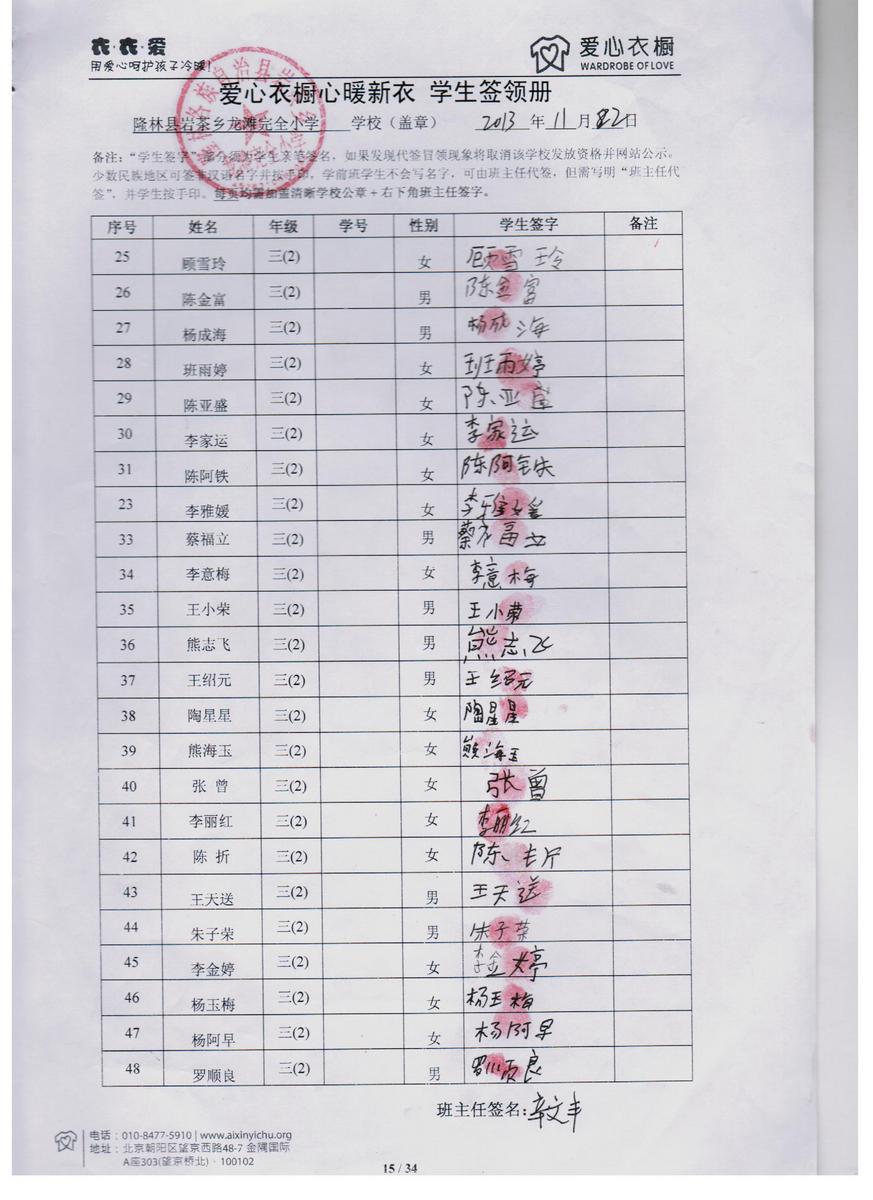 衣·衣·爱
用爱心呵护孩子冷暖!
爱心衣橱
WARDROBE OF LOVE
爱心衣橱心暖新衣 学生签领册
隆林县岩茶乡龙滩完全小学 学校（盖章） 2013 年 11 月 22 日
备注：“学生签字”部分须为学生亲笔签名，如果发现代签冒领现象将取消该学校发放资格并网站公示。
少数民族地区可签非汉语名字并按手印，学前班学生不会写名字，可由班主任代签，但需写明“班主任代
签”，并学生按手印。每页均需加盖清晰学校公章+右下角班主任签字。
序号 姓名 年级 学号 性别 学生签字 备注
25 顾雪玲 三(2) 女 顾雪玲
26 陈金富 三(2) 男 陈金富
27 杨成海 三(2) 男 杨成海
28 班雨婷 三(2) 女 班雨婷
29 陈亚盛 三(2) 女 陈亚盛
30 李家运 三(2) 女 李家运
31 陈阿铁 三(2) 女 陈阿铁
23 李雅媛 三(2) 女 李雅媛
33 蔡福立 三(2) 男 蔡福立
34 李意梅 三(2) 女 李意梅
35 王小荣 三(2) 男 王小荣
36 熊志飞 三(2) 男 熊志飞
37 王绍元 三(2) 男 王绍元
38 陶星星 三(2) 女 陶星星
39 熊海玉 三(2) 女 熊海玉
40 张 曾 三(2) 女 张曾
41 李丽红 三(2) 女 李丽红
42 陈 折 三(2) 女 陈折
43 王天送 三(2) 男 王天送
44 朱子荣 三(2) 男 朱子荣
45 李金婷 三(2) 女 李金婷
46 杨玉梅 三(2) 女 杨玉梅
47 杨阿早 三(2) 女 杨阿早
48 罗顺良 三(2) 男 罗顺良
班主任签名:
电话：010-8477-5910 | www.aixinyichu.org
地址：北京朝阳区望京西路48-7 金隅国际
A座303(望京桥北) · 100102
15 / 34